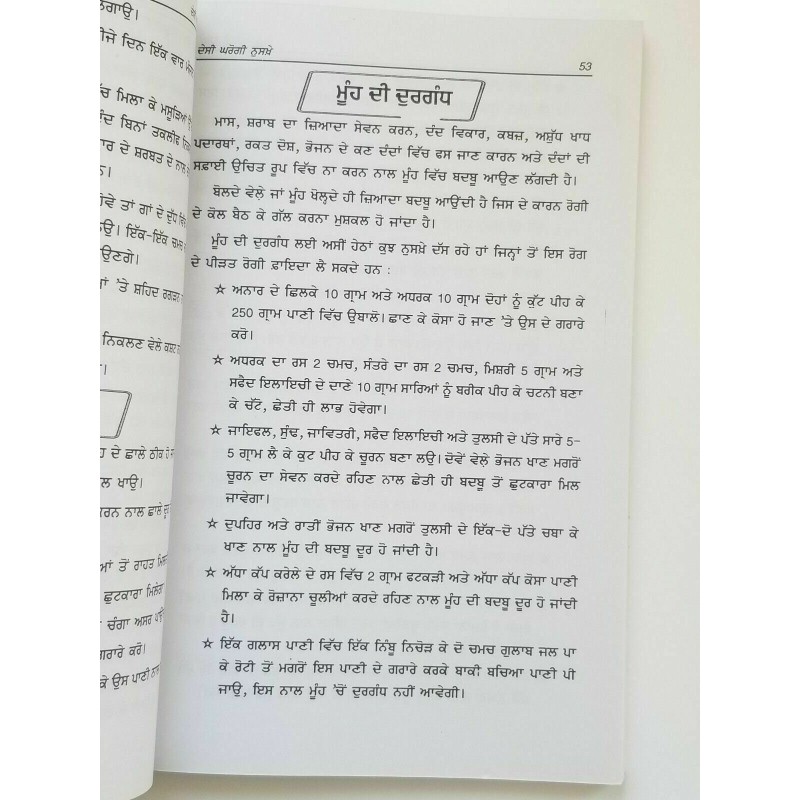 ਲਗਾਉ।
ਦਿਨ ਇੱਕ ਵਾਰ
ਮਿਲਾ ਕੇ ਮਸੂੜਿਆਂ
ਬਿਨਾਂ ਤਕਲੀਫ਼
ਦੇ ਸ਼ਰਬਤ ਦੇ ਨਾਲ
ਹੋਵੇ ਤਾਂ ਗਾਂ ਦੇ ਦੁੱਧ
ਇੱਕ-ਇੱਕ ਚਮਚ
'ਤੇ ਸ਼ਹਿਦ
ਨਿਕਲਣ ਵੇਲੇ
ਦੇ ਛਾਲੇ ਠੀਕ ਹੋ
ਖਾਉ।
ਨਾਲ ਛਾਲੇ
ਤੋਂ ਰਾਹਤ
ਛੁਟਕਾਰਾ ਮਿਲੇਗਾ
ਚੰਗਾ ਅਸਰ
ਗਰਾਰੇ ਕਰੋ।
ਕੇ ਉਸ ਪਾਣੀ ਨਾਲ
ਦੇਸੀ ਘਰੋਗੀ ਨੁਸਖ਼ੇ 53
ਮੂੰਹ ਦੀ ਦੁਰਗੰਧ
ਮਾਸ, ਸ਼ਰਾਬ ਦਾ ਜ਼ਿਆਦਾ ਸੇਵਨ ਕਰਨ, ਦੰਦ ਵਿਕਾਰ, ਕਬਜ਼, ਅਸ਼ੁੱਧ ਖਾਧ
ਪਦਾਰਥਾਂ, ਰਕਤ ਦੋਸ਼, ਭੋਜਨ ਦੇ ਕਣ ਦੰਦਾਂ ਵਿੱਚ ਫਸ ਜਾਣ ਕਾਰਨ ਅਤੇ ਦੰਦਾਂ ਦੀ
ਸਫ਼ਾਈ ਉਚਿਤ ਰੂਪ ਵਿੱਚ ਨਾ ਕਰਨ ਨਾਲ ਮੂੰਹ ਵਿੱਚ ਬਦਬੂ ਆਉਣ ਲੱਗਦੀ ਹੈ।
ਬੋਲਦੇ ਵੇਲੇ ਜਾਂ ਮੂੰਹ ਖੋਲ੍ਹਦੇ ਹੀ ਜ਼ਿਆਦਾ ਬਦਬੂ ਆਉਂਦੀ ਹੈ ਜਿਸ ਦੇ ਕਾਰਨ ਰੋਗੀ
ਦੇ ਕੋਲ ਬੈਠ ਕੇ ਗੱਲ ਕਰਨਾ ਮੁਸ਼ਕਲ ਹੋ ਜਾਂਦਾ ਹੈ।
ਮੂੰਹ ਦੀ ਦੁਰਗੰਧ ਲਈ ਅਸੀਂ ਹੇਠਾਂ ਕੁਝ ਨੁਸਖ਼ੇ ਦੱਸ ਰਹੇ ਹਾਂ ਜਿਨ੍ਹਾਂ ਤੋਂ ਇਸ ਰੋਗ
ਦੇ ਪੀੜਤ ਰੋਗੀ ਫ਼ਾਇਦਾ ਲੈ ਸਕਦੇ ਹਨ :
☆ ਅਨਾਰ ਦੇ ਛਿਲਕੇ 10 ਗ੍ਰਾਮ ਅਤੇ ਅਧਰਕ 10 ਗ੍ਰਾਮ ਦੋਹਾਂ ਨੂੰ ਕੁੱਟ ਪੀਹ ਕੇ
250 ਗ੍ਰਾਮ ਪਾਣੀ ਵਿੱਚ ਉਬਾਲੋ। ਛਾਣ ਕੇ ਕੋਸਾ ਹੋ ਜਾਣ 'ਤੇ ਉਸ ਦੇ ਗਰਾਰੇ
ਕਰੋ।
☆ ਅਧਰਕ ਦਾ ਰਸ 2 ਚਮਚ, ਸੰਤਰੇ ਦਾ ਰਸ 2 ਚਮਚ, ਮਿਸ਼ਰੀ 5 ਗ੍ਰਾਮ ਅਤੇ
ਸਫੈਦ ਇਲਾਇਚੀ ਦੇ ਦਾਣੇ 10 ਗ੍ਰਾਮ ਸਾਰਿਆਂ ਨੂੰ ਬਰੀਕ ਪੀਹ ਕੇ ਚਟਨੀ ਬਣਾ
ਕੇ ਚੱਟੋ, ਛੇਤੀ ਹੀ ਲਾਭ ਹੋਵੇਗਾ।
☆ ਜਾਇਫਲ, ਸੁੰਢ, ਜਾਵਿਤਰੀ, ਸਫੈਦ ਇਲਾਇਚੀ ਅਤੇ ਤੁਲਸੀ ਦੇ ਪੱਤੇ ਸਾਰੇ 5-
5 ਗ੍ਰਾਮ ਲੈ ਕੇ ਕੁਟ ਪੀਹ ਕੇ ਚੂਰਨ ਬਣਾ ਲਉ। ਦੋਵੇਂ ਵੇਲੇ ਭੋਜਨ ਖਾਣ ਮਗਰੋਂ
ਚੂਰਨ ਦਾ ਸੇਵਨ ਕਰਦੇ ਰਹਿਣ ਨਾਲ ਛੇਤੀ ਹੀ ਬਦਬੂ ਤੋਂ ਛੁਟਕਾਰਾ ਮਿਲ
ਜਾਵੇਗਾ।
☆ ਦੁਪਹਿਰ ਅਤੇ ਰਾਤੀਂ ਭੋਜਨ ਖਾਣ ਮਗਰੋਂ ਤੁਲਸੀ ਦੇ ਇੱਕ-ਦੋ ਪੱਤੇ ਚਬਾ ਕੇ
ਖਾਣ ਨਾਲ ਮੂੰਹ ਦੀ ਬਦਬੂ ਦੂਰ ਹੋ ਜਾਂਦੀ ਹੈ।
☆ ਅੱਧਾ ਕੱਪ ਕਰੇਲੇ ਦੇ ਰਸ ਵਿੱਚ 2 ਗ੍ਰਾਮ ਫਟਕੜੀ ਅਤੇ ਅੱਧਾ ਕੱਪ ਕੋਸਾ ਪਾਣੀ
ਮਿਲਾ ਕੇ ਰੋਜ਼ਾਨਾ ਚੂਲੀਆਂ ਕਰਦੇ ਰਹਿਣ ਨਾਲ ਮੂੰਹ ਦੀ ਬਦਬੂ ਦੂਰ ਹੋ ਜਾਂਦੀ
ਹੈ।
☆ ਇੱਕ ਗਲਾਸ ਪਾਣੀ ਵਿੱਚ ਇੱਕ ਨਿੰਬੂ ਨਿਚੋੜ ਕੇ ਦੋ ਚਮਚ ਗੁਲਾਬ ਜਲ ਪਾ
ਕੇ ਰੋਟੀ ਤੋਂ ਮਗਰੋਂ ਇਸ ਪਾਣੀ ਦੇ ਗਰਾਰੇ ਕਰਕੇ ਬਾਕੀ ਬਚਿਆ ਪਾਣੀ ਪੀ
ਜਾਉ, ਇਸ ਨਾਲ ਮੂੰਹ 'ਚੋਂ ਦੁਰਗੰਧ ਨਹੀਂ ਆਵੇਗੀ।